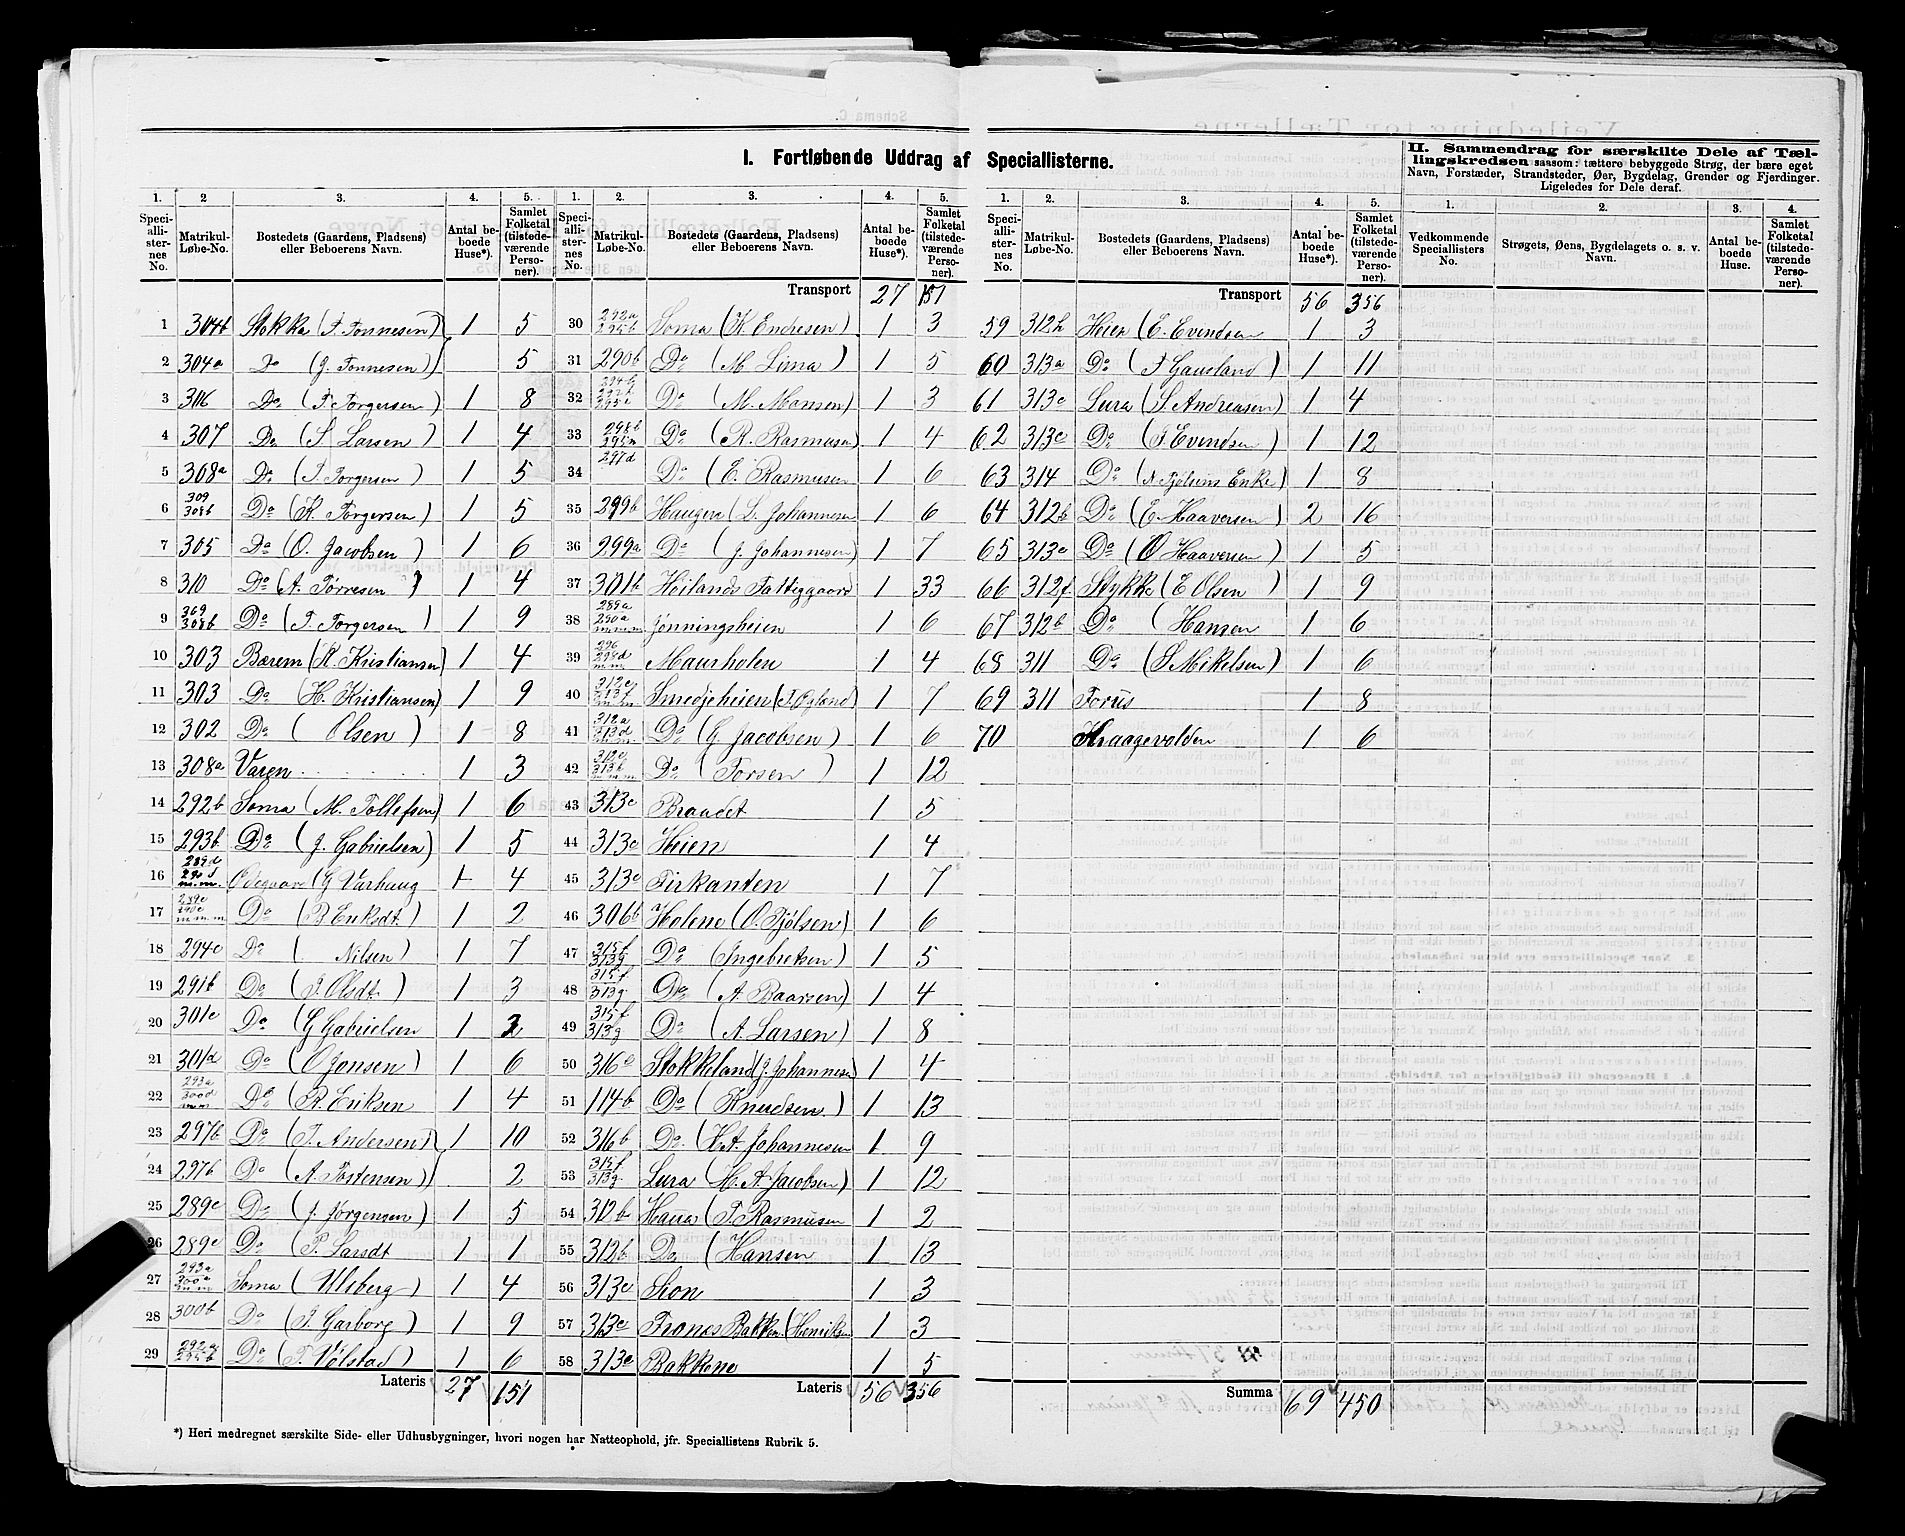 I. Fortløbende Uddrag af Speciallisterne.
II. Sammendrag for særskilte Dele af Tællingskredsen saasom: tættere bebyggede Strøg, der bære eget Navn, Forstæder, Strandsteder, Øer, Bygdelag, Grender og Fjerdinger. Ligeledes for Dele deraf.
1. 2 3. 4. 5. 1. 2. 3. 4. 5.
Speciallisternes No. Matrikul-Løbe-No. Bostedets (Gaardens, Pladsens) eller Beboerens Navn. Antal beboede Huse*). Samlet Folketal (tilstedeværende Personer).
Speciallisternes No. Matrikul-Løbe-No. Bostedets (Gaardens, Pladsens) eller Beboerens Navn. Antal beboede Huse*). Samlet Folketal (tilstedeværende Personer).
Transport 27 151
1 304b Stokka (T. Tønnesen) 1 5
2 304a Do (J. Tønnesen) 5
3 306 Do (T. Torgersen) 1 8
4 307 Do (S. Larsen) 1 4
5 308a Do (T. Torgersen) 1 5
6 309 308b Do (K. Torgersen) 1 5
7 305 Do (O. Jacobsen) 1 6
8 310 Do (A. Tørresen) 1 4
9 369 308b Do (T. Torgersen) 1 9
10 303 Bærem (K. Kristiansen) 1 4
11 303 Do (H. Kristiansen) 1 9
12 302 Do (Olsen) 1 8
13 308a Varen 1 3
14 292b Soma (M. Tollefsen) 1 6
15 293b Do (J. Gabrielsen) 1 5
16 289d 290d m.m. Ødegaard (G Varhaug 1 4
17 289e 290e m.m.m Do (B. Eriksdt.) 1 2
18 294c Do (Nilsen) 1 7
19 291b Do (I. Olsdt) 1 3
20 301c Do (G Gabrielsen 1 2
21 301d Do (O Jonsen) 1 6
22 293a 300d m.m Do (R. Eriksen 1 4
23 297b Do (T. Andersen) 1 10
24 297b Do (A. Tostensen) 2
25 289c Do (J. Jørgensen) 1 5
26 289c Do (P. Larsdt 1 1
27 293a 300a m.m Soma (Ulsberg) 1 4
28 300b Do (T. Garborg) 1 9
29 292a 295b Do (T. Vølstad) 1 6
Lateris 27 151
30 292a 295b Soma (K. Endresen) 1 3
31 290b Do (M. Lima) 1 5
32 Do (M. Monsen) 1 3
33 298b 295a Do (R. Rasmusen) 1 4
34 297d Do (E. Rasmusen 1 6
35 299b Haugen (L. Johannesen 1 6
36 299a Do (J. Johannesen) 1 7
37 301b Høilands Fattiggaard 1 33
38 289a 290a m.m.m Jønningsheien 1 6
39 296 298d m.m Maurholen 1 4
40 312c 313f m.m Smedjeheien (T. Øgland) 1 7
41 312a 313d Do (G. Jacobsen) 1 6
42 312c 313b m.m.m Do (Torsen) 1 12
43 313c Braadet 1 5
44 313c Heien 1 4
45 313c Firkanten 1 7
46 306b Holene (O. Tjølsen) 1 6
47 315f 313g Do (Ingebretsen) 1 5
48 315f 313g Do (A. Baarsen) 1 4
49 315f 313g Do (A. Larsen) 1 8
50 316c Stokkeland (J. Johannesen) 1 4
51 114b Do (Knudsen) 1 13
52 316b Do. (H A. Johannesen 1 9
53 315f 313g Lura (H. A Jacobsen) 1 12
54 312b Hana (T. Rasmusen 1 2
55 312b Do (Hansen 1 13
56 313c Sion 1 3
57 313c Trones Bakken (Henriksen 1 3
58 313c Bakkene 1 5
Lateris 56 356
*) Heri medregnet særskilte Side- eller Udhusbygninger, hvori nogen har Natteophold, jfr. Speciallistens Rubrik 5.
1. 2. 3. 4. 5. 1. 2. 3. 4.
Speciallisternes No. Matrikul-Løbe-No. Bostedets (Gaardens, Pladsens) eller Beboerens Navn. Antal beboede Huse*). Samlet Folketal (tilstedeværende Personer).
Vedkommende Speciallisters No. Strøgets, Øens, Bygdelagets o. s. v. Navn. Antal beboede Huse. Samlet Folketal (tilstedeværende Personer).
Transport 56 356
59 312h Heien (E. Evindsen 1 3
60 313a Do (T Gausland) 1 11
61 313c Lura (S. Andreasen) 1 4
62 313c Do (T. Evindsen) 1 12
63 314 Do (A Tjølsens Enke) 1 8
64 312b Do (E. Haaversen) 2 16
65 313c Do (O Haaversen) 1 5
66 312f Stykke (E Olsen) 1 9
67 312b Do (Hansen 1 6
68 311 Do (S Mikelsen) 1 6
69 311 Forus 1 8
70 Kraagevolden 1 6
Summa 69 450